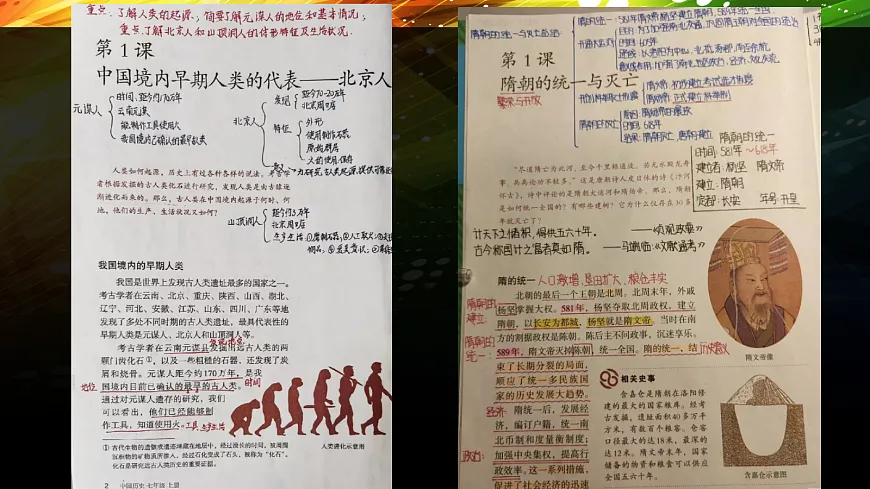 重点：了解人类的起源，简要了解元谋人的地位和基本情况；
重点了解北京人和山顶洞人的体形特征及生活状况．
第 1 课
中国境内早期人类的代表——北京人
元谋人
时间：距今约170万年
云南元谋
能制作工具使用火
我国境内已确认的最早的古人类
北京人
发现
距今70-20万年
北京周口店
特征
外形
使用制作石器
原始群居
火的使用、保存
人类如何起源，历史上有过各种各样的说法。考古学
者根据发掘的古人类化石进行研究，发现人类是由古猿逐
渐进化而来的。那么，古人类在中国境内起源于何时、何
地，他们的生产、生活状况又如何？
山顶洞人
北京周口店
我国境内的早期人类
我国是世界上发现古人类遗址最多的国家之一。
考古学者在云南、北京、重庆、陕西、山西、湖北、
辽宁、河北、安徽、江苏、山东、四川、广东等地
发现了多处不同时期的古人类遗址，最具代表性的
早期人类是元谋人、北京人和山顶洞人等。
考古学者在云南元谋县发掘出远古人类的两
颗门齿化石①，以及一些粗糙的石器，还发现了炭
屑和烧骨。元谋人距今约 170 万年，是我
地位
国境内目前已确认的最早的古人类。
时间
通过对元谋人遗存的研究，我们
可以看出，他们已经能够制
作工具，知道使用火。
① 古代生物的遗骸或遗迹埋藏在地层中，经过漫长的时间，被周围
沉积物的矿物质所渗入，经过石化变成了石头，被称为“化石”。
化石是研究远古人类历史的重要证据。
人类进化示意图
2 中国历史 七年级 上册
隋朝的统一与灭亡
第 1 课
隋朝的统一与灭亡
繁荣与开放
隋朝的统一
时间：581年～618年
建立者：杨坚 隋文帝
建立：隋朝
定都：长安 年号：开皇
“尽道隋亡为此河，至今千里赖通波。若无水殿龙舟
事，共禹论功不较多。”这是唐朝诗人皮日休的诗《汴河
怀古》，诗中评论的是隋朝大运河和隋炀帝。那么，隋朝
是如何统一全国的？有哪些建树？它为什么仅存在 30 多
年就灭亡了？
计天下之储积，得供五六十年。 ——《贞观政要》
古今称国计之富者莫如隋。 ——马端临《文献通考》
隋的统一 人口激增，垦田扩大，粮仓丰实
北朝的最后一个王朝是北周。北周末年，外戚
隋朝的建立：
杨坚掌握大权。581 年，杨坚夺取北周政权，建立
隋朝，以长安为都城，杨坚就是隋文帝。当时在南
方的割据政权是陈朝。陈后主不问政事，沉迷享乐。
隋朝的统一：
589年，隋文帝灭掉陈朝，统一全国。隋的统一，结
历史意义
束了长期分裂的局面，
顺应了统一多民族国
家的历史发展大趋势。
经济：
隋统一后，发展经
济，编订户籍，统一南
北币制和度量衡制度；
政治：
加强中央集权，提高行
政效率。这一系列措施，
促进了社会经济的迅速
隋文帝像
相关史事
含嘉仓是隋朝在洛阳修
建的最大的国家粮库。经考
古发掘，遗址面积 40 多万平
方米，有数百个粮窖。仓窖
口径最大的达18米，最深的
达12米。隋文帝末年，国家
储备的物资和粮食可以供应
全国五六十年。
含嘉仓示意图